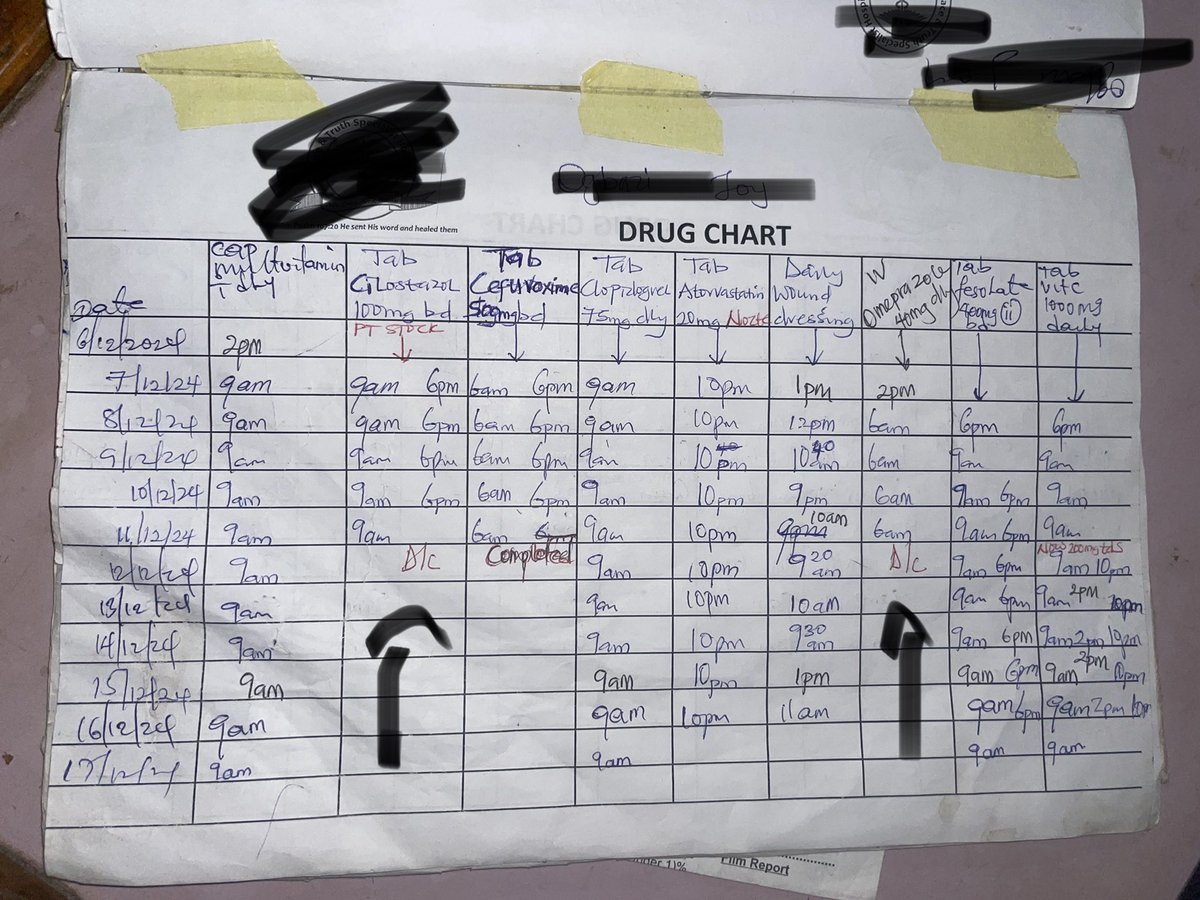 Truth Specia
e & Truth Specialist Hosp
Joy
20 He sent His word and healed them
DRUG CHART
Date
cap Multivitamin T dly
Tab Cilostazol 100mg bd
Tab Cefuroxime 500mg bd
Tab Clopidogrel 75mg dly
Tab Atorvastatin 20mg Nocte
Daily Wound dressing
IV Omeprazole 40mg dly
Tab fesolate 400mg (ii) bd
Tab Vit C 1000mg daily
PT STOCK
6/12/2024 2pm
7/12/24 9am 9am 6pm 6am 6pm 9am 10pm 1pm 2pm
8/12/24 9am 9am 6pm 6am 6pm 9am 10pm 12pm 6am 6pm 6pm
9/12/24 9am 9am 6pm 6am 6pm 9am 10pm 10 am 6am 9am 9am
10/12/24 9am 9am 6pm 6am 6pm 9am 10pm 9pm 6am 9am 6pm 9am
11/12/24 9am 9am 6am 9am 10pm 10am 6am 9am 6pm 9am
12/12/24 9am D/c Completed 9am 10pm 9 20 am D/c 9am 6pm Now 200mg tds 9am 10pm
13/12/24 9am 9am 10pm 10am 9am 6pm 9am 2pm 10pm
14/12/24 9am 9am 10pm 9 30 am 9am 6pm 9am 2pm 10pm
15/12/24 9am 9am 10pm 1pm 9am 6pm 9am 2pm 10pm
16/12/24 9am 9am 10pm 11am 9am 6pm 9am 2pm 10pm
17/12/24 9am 9am 9am 9am
nder 1)%
Film Report